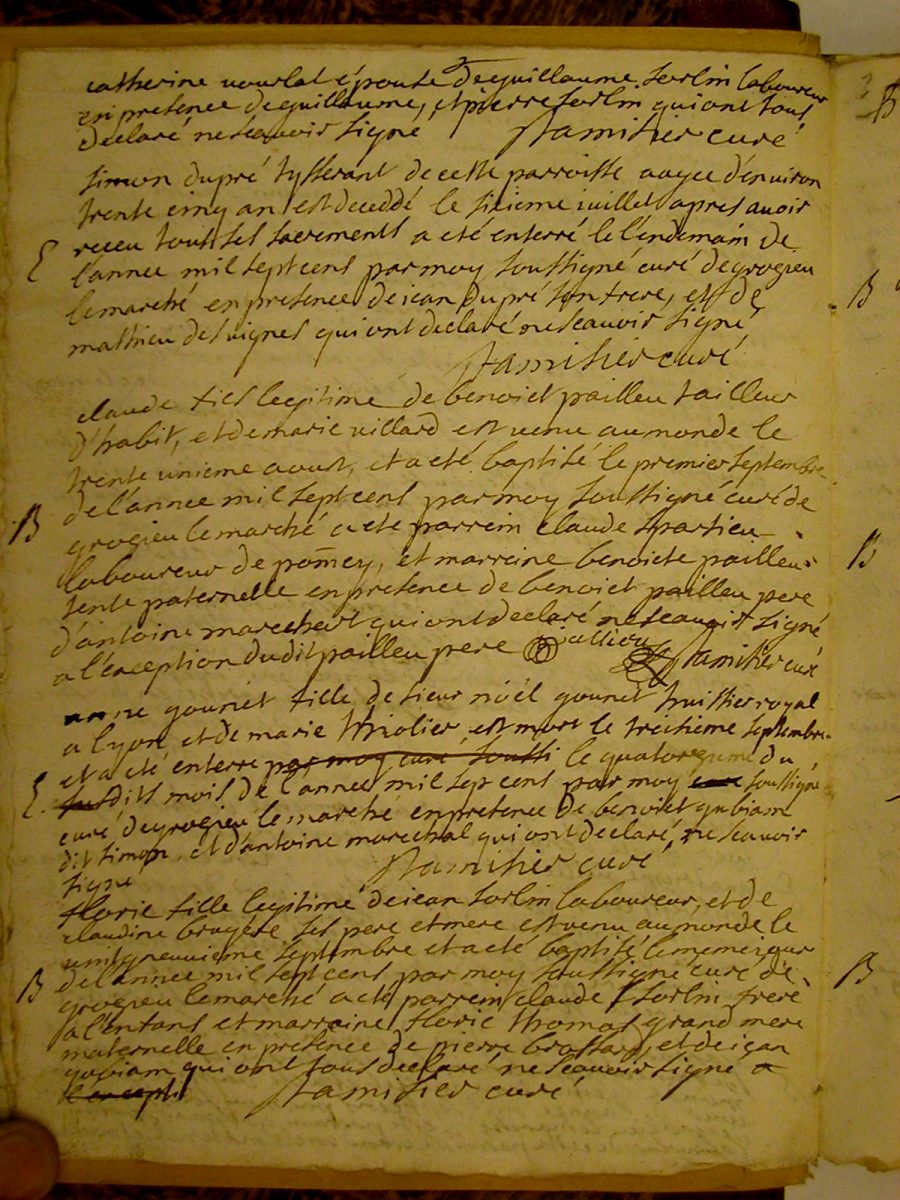 catherine vourlat épouse de guillaume sorlin laboureur
en presence de guillaume, et pierre sorlin qui ont tous
declaré ne scavoir signe Stamisier curé
simon dupré tysserant de cette parroisse aagee d'environ
trente cinq an est deceddé le sixieme iuillet apres avoir
E receu tous ses sacrements a eté enterré le l'endemain de
l'annee mil sept cens par moy soussigné curé de grogieu
le marché en presence de iean dupré son frere, et de
mathieu desvignes qui ont declaré ne scavoir signé
Stamisier curé
claude fils legitime de benoict pailleu tailleur
d'habit, et de marie villard est venu au monde le
trente unieme aoust, et a eté baptisé le premier septembre
de l'annee mil sept cens par moy soussigné curé de
B grogieu le marché a eté parrein claude
laboureur de pomey, et marreine benoicte pailleu
tente paternelle en presence de benoict pailleu pere
d'antoine marechal qui ont declaré ne scavoir signé
a l'exception dudit pailleu pere Stamisier curé
anne gounet fille de sieur noël gounet huissier royal
a lyon, et de marie est mort le treisieme septembre
et a eté enterre par moy curé soussi le quatorzieme du
E susdits mois de l'annee mil sep cens par moy curé soussigné
curé de grogieu le marché en presence de benoict gubiam
dit simon, et d'antoine marechal qui ont declaré ne scavoir
signé Stamisier curé
florie fille legitime de iean sorlin laboureur, et de
claudine bruyere ses pere et mere est venu au monde le
septembre et a eté baptisé le meme iour
de l'annee mil sept cens par moy soussigné curé de
B grogieu le marché a eté parrein claude sorlin frere
a l'enfans et marraine florie thomas grand mere
maternelle en presence de pierre brossard, et de iean
gubiam qui ont tous declaré ne scavoir signe a
l'except. Stamisier curé
B
B
B